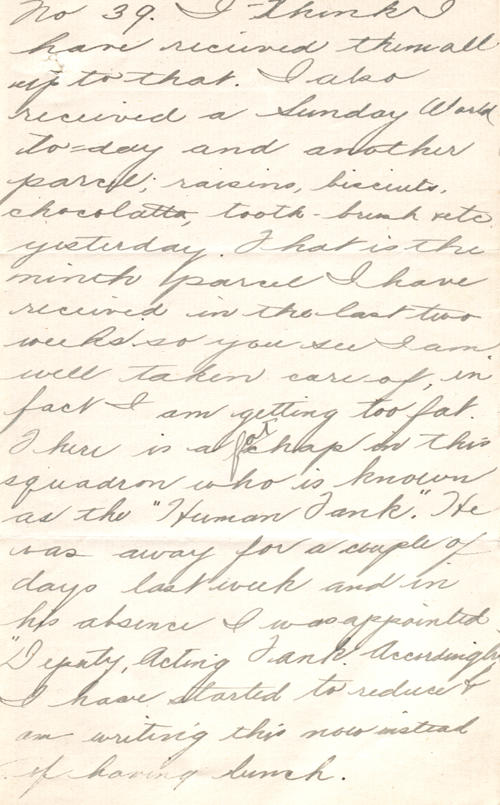 No 39. I think I
have recieved them all
up to that. I also
received a Sunday World
to-day and another
parcel; raisins, biscuits,
chocolatts, tooth-brush etc.
yesterday. That is the
ninth parcel I have
received in the last two
weeks so you see I am
well taken care of, in
fact I am getting too fat.
There is a fat chap in this
squadron who is known
as the "Human Tank". He
was away for a couple of
days last week and in
his absence I was appointed
"Deputy, Acting Tank". Accordingly
I have started to reduce &
am writing this now instead
of having lunch.